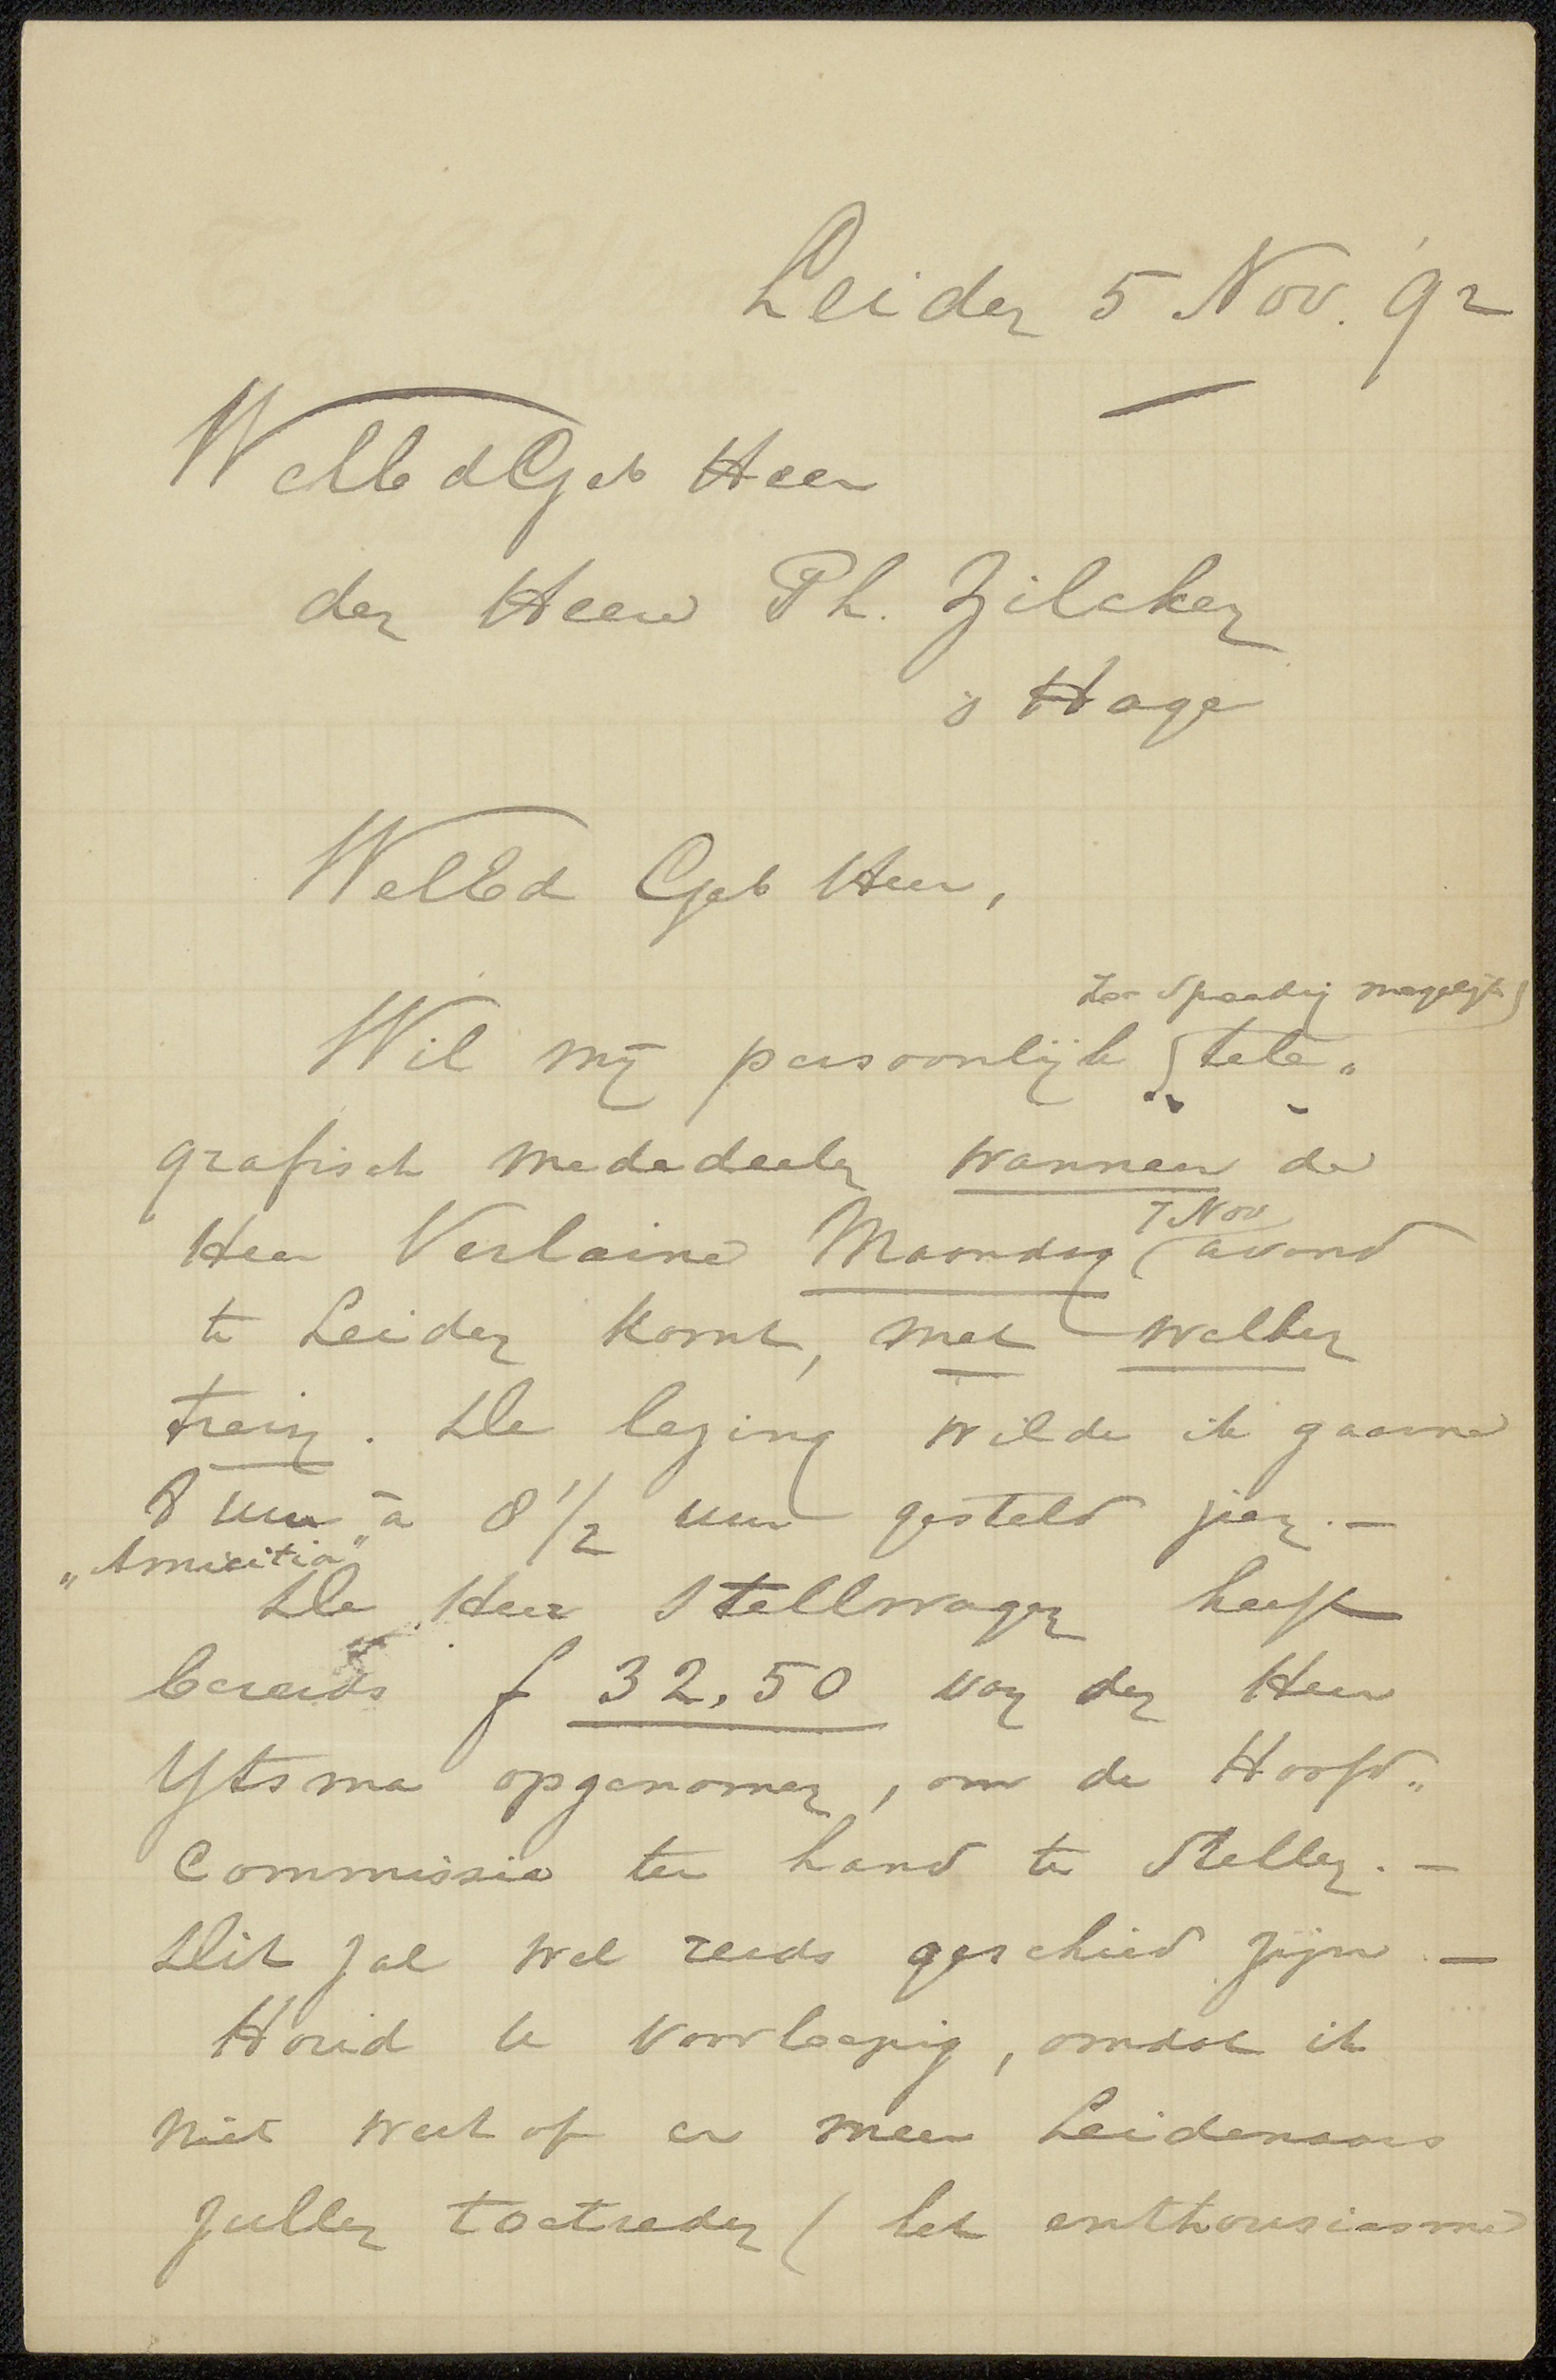 Leiden 5 Nov. '92
WelEdGeb Heer
den Heer Ph. Zilcken
's Hage
WelEd Geb Heer,
zoo spoedig mogelijk
Wil mij persoonlijk tele„
grafisch mededeelen wanneer de
7 Nov
Heer Verlaine Maandag avond
te Leiden komt, met welken
trein. De lezing wilde ik gaarne
8 uur à 8 1/2 uur gesteld zien. —
„Amicitia"
De Heer Stellwagen heeft
bereids f 32.50 van den Heer
Ytsma opgenomen, om de Hoofd„
Commissie ter hand te stellen. —
Dit zal wel reeds geschied zijn. —
Houd U voorloopig, omdat ik
niet weet of er meer Leidenaars
zullen toetreden ( het enthousiasme